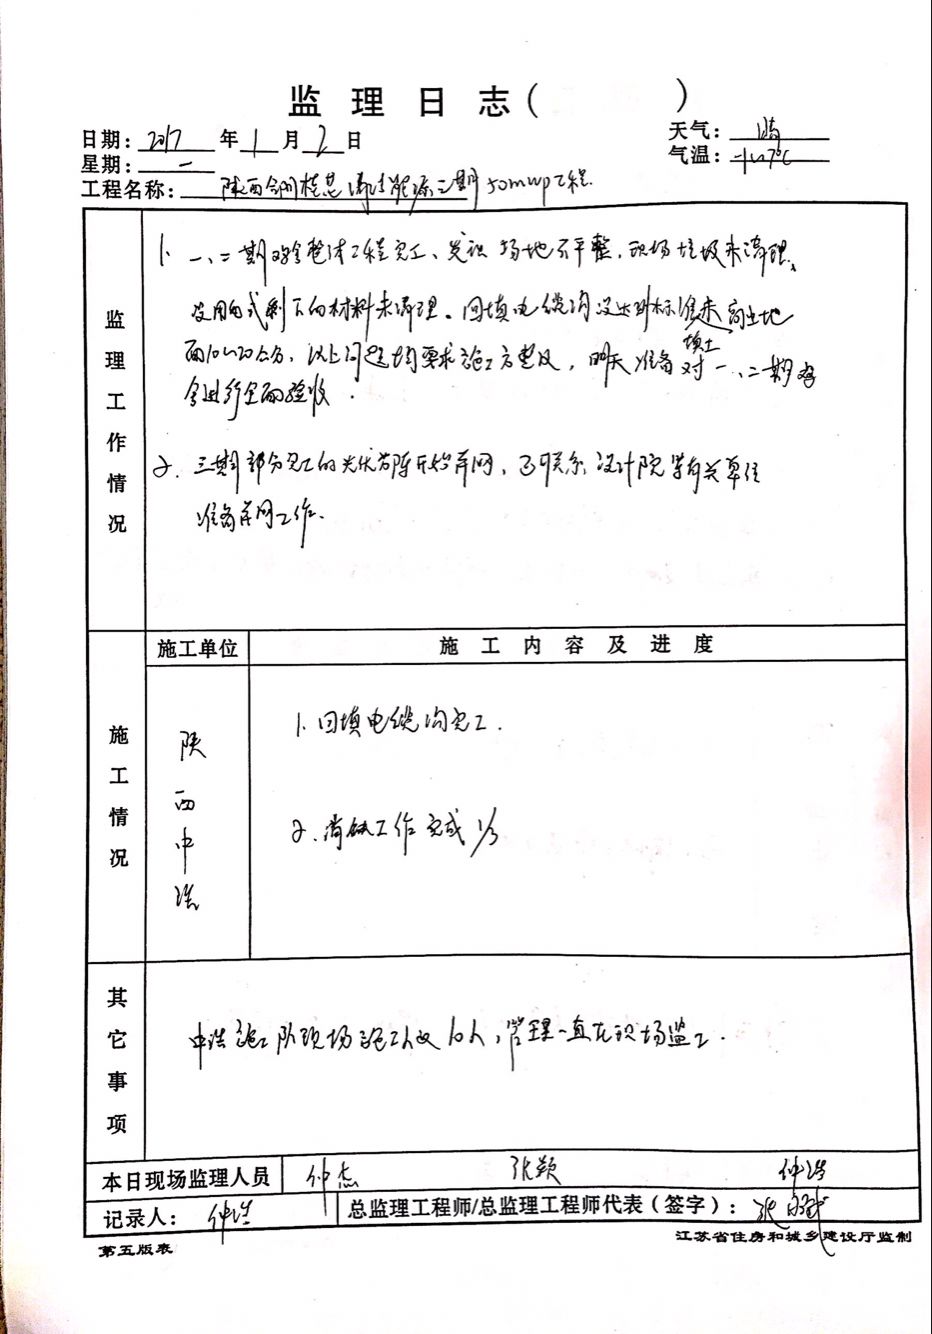 监理日志( )
日期: 2017 年 1 月 2 日 天气: 晴
星期: 一 气温: -1~7℃
工程名称: 陕西 清洁能源二期50mwp工程.
监理工作情况
1. 一、二期 整体工程完工、发现场地不平整,现场垃圾未清理、
没用的或剩下的材料未清理。回填电缆沟没达到标准未高出地
面10~20公分,以上问题均要求施工方整改,明天准备对一、二期
填土
进行全面验收.
2. 三期部分完工的光伏方阵开始并网,已联系设计院等有关单位
准备并网工作.
施工情况
施工单位 施工内容及进度
陕西中浩
1. 回填电缆沟完工.
2. 消缺工作完成1/3
其它事项
中浩施工队现场施工人员10人,管理一直在现场监工.
本日现场监理人员 仲杰 张颖 仲浩
记录人: 仲浩 总监理工程师/总监理工程师代表(签字): 张
第五版表 江苏省住房和城乡建设厅监制